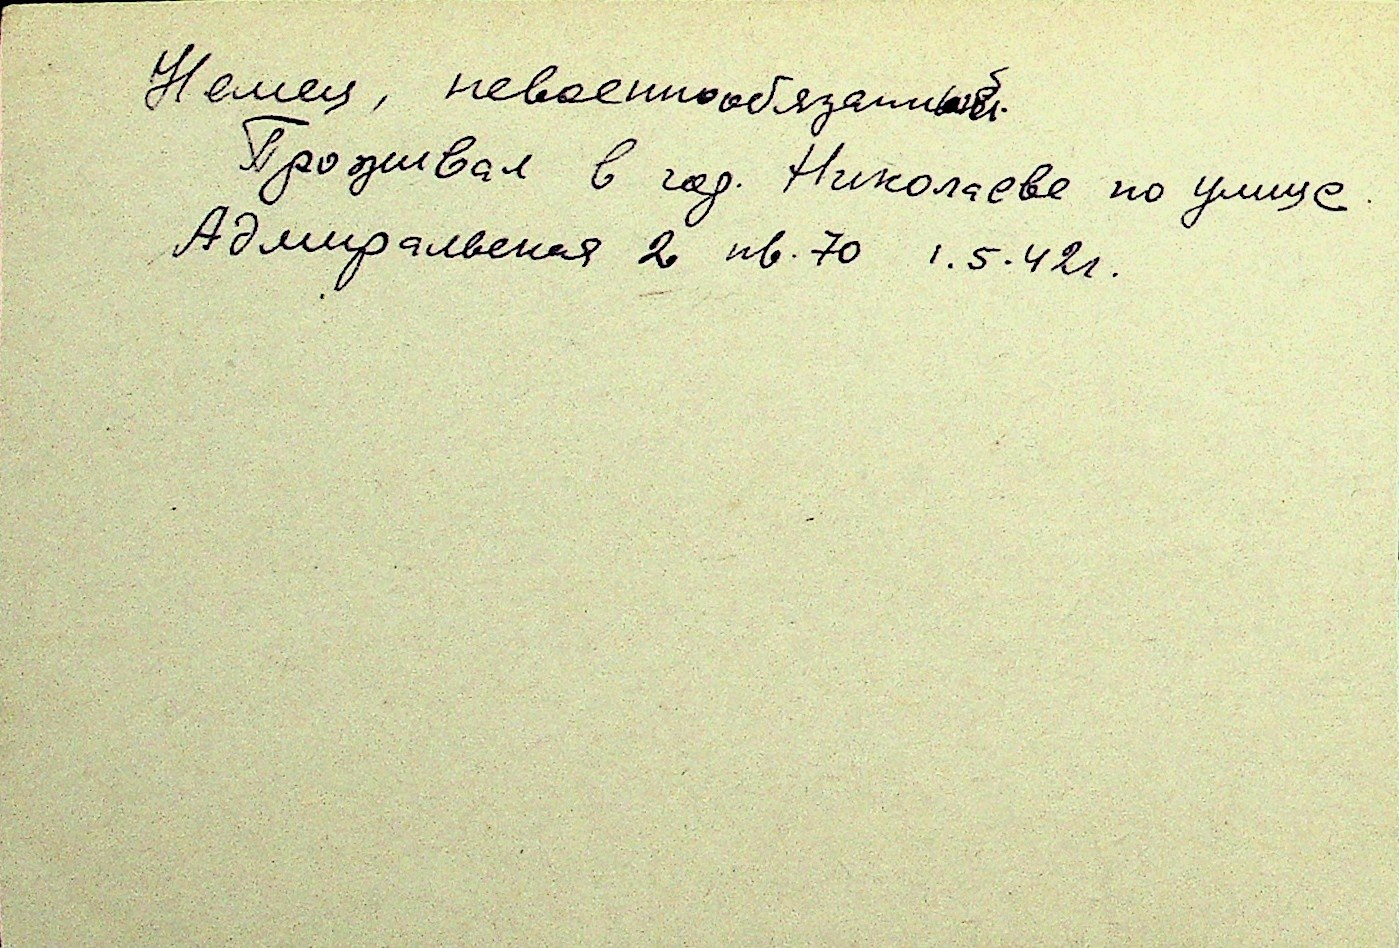 Немец, невоеннообязанный.
Проживал в гор. Николаеве по улице
Адмиральская 2 кв. 70 1.5.42г.